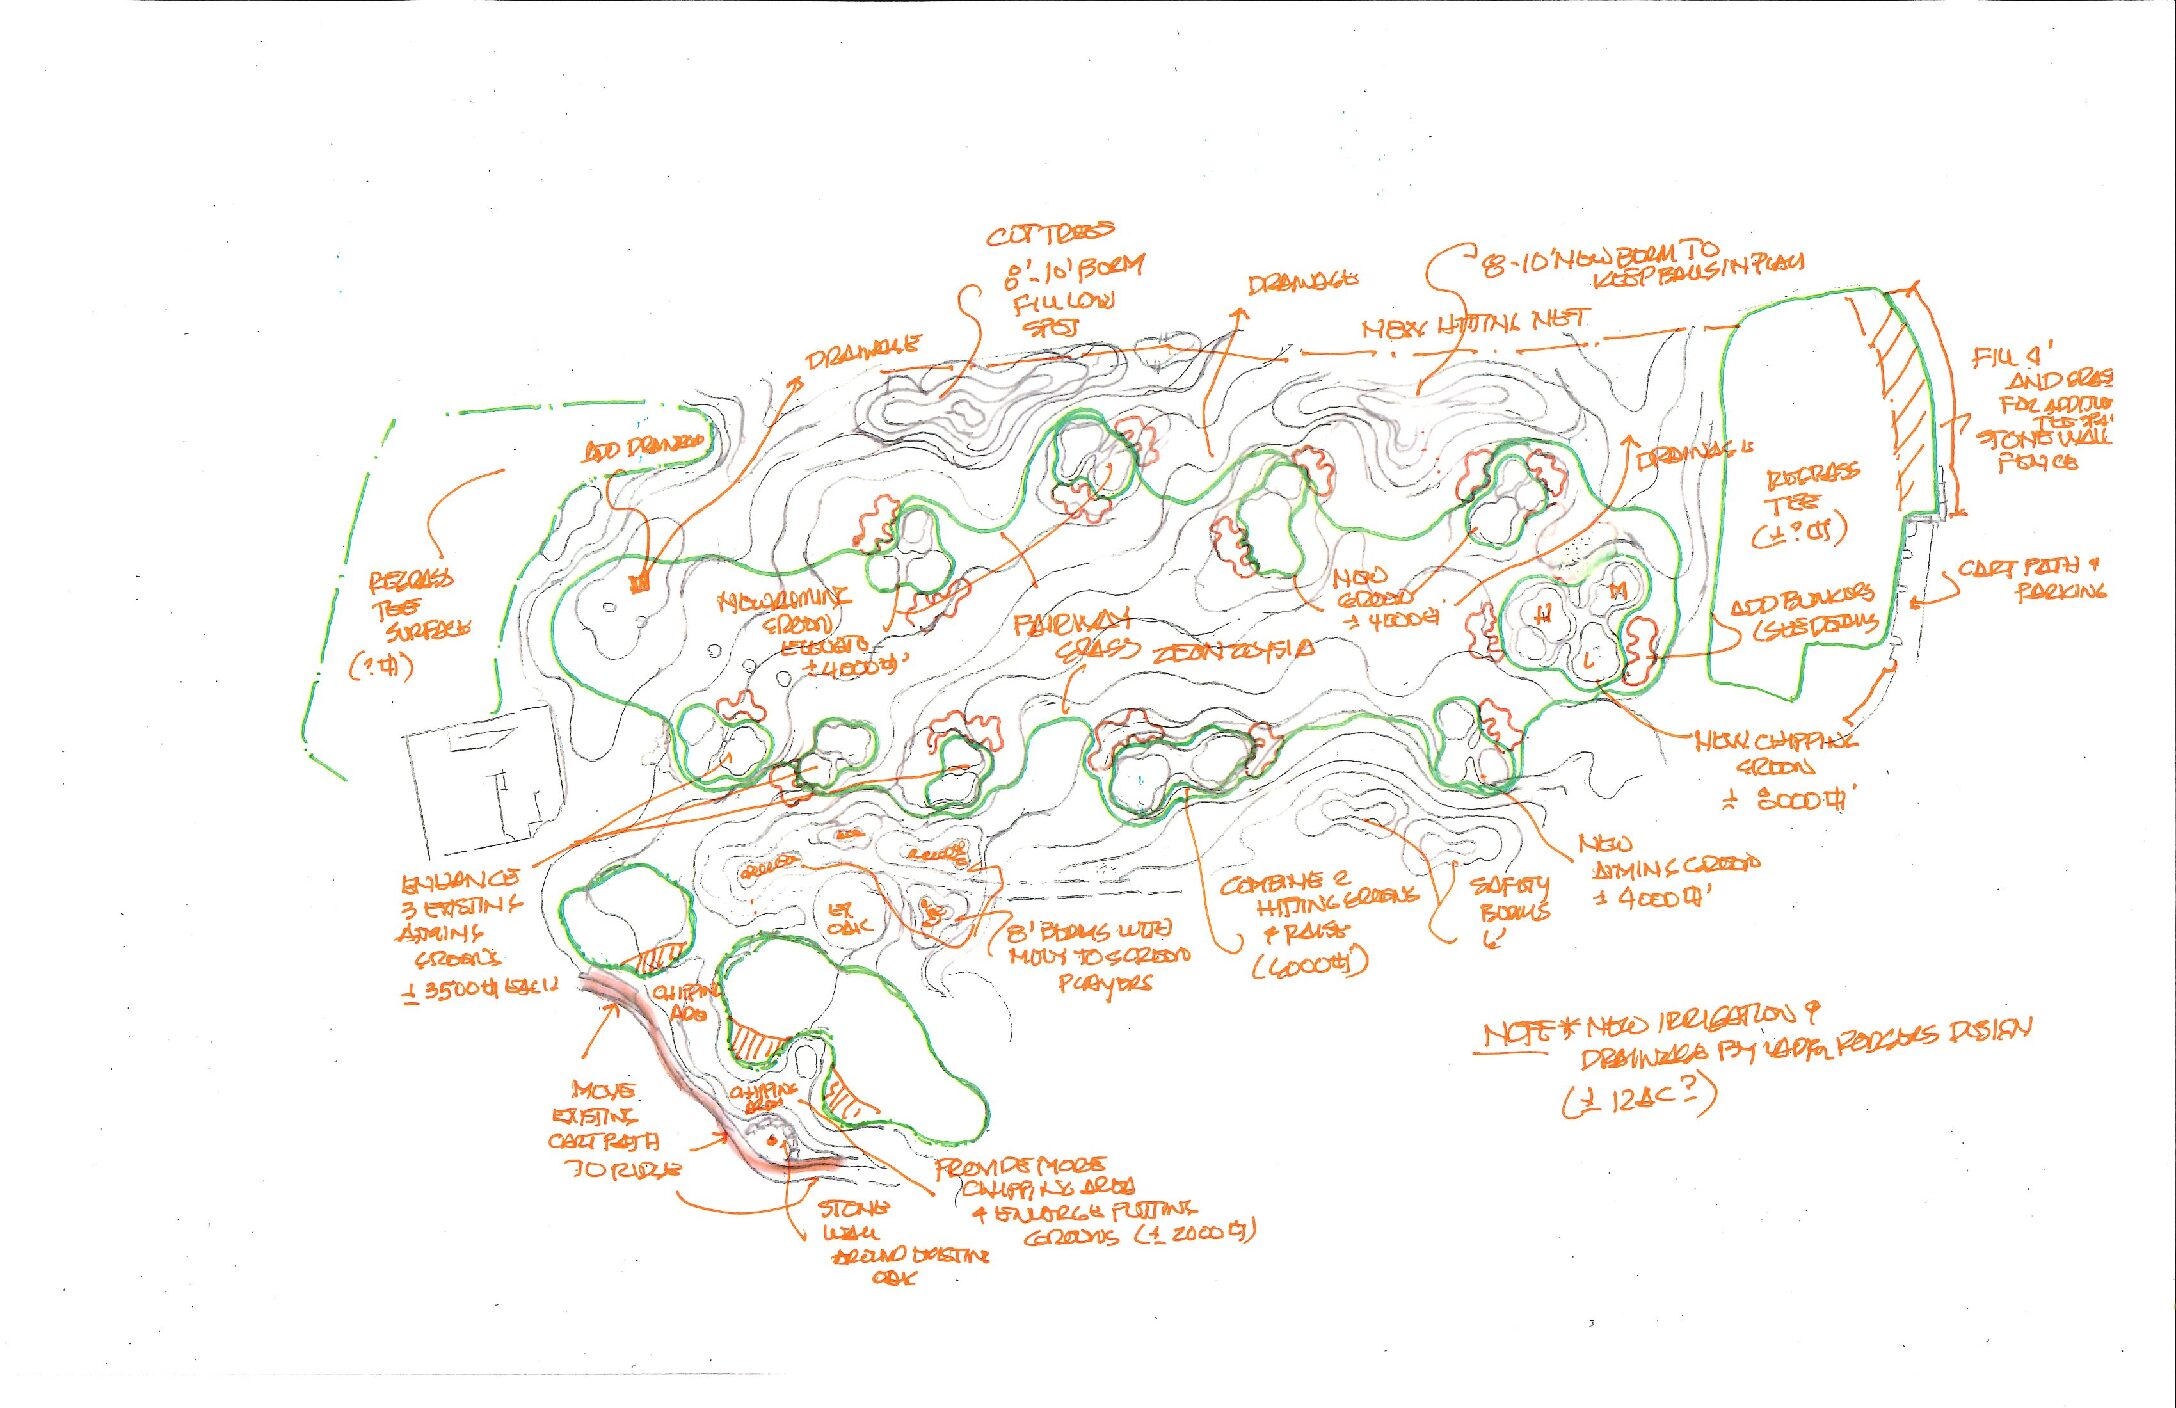 CUT TREES
8'-10' BERM
FILL LOW
SPOT
DRAINAGE
DRAINAGE
8-10' NEW BERM TO
KEEP BALLS IN PLAY
NEW HITTING NET
FILL 4'
AND GRASS
FOR
TEE
STONE WALL
FENCE
DRAINAGE
ADD DRAINAGE
REGRASS
TEE
(±?⌗)
REGRASS
TEE
SURFACE
(?⌗)
NEW AIMING
GREEN
ELEVATED
±4000⌗'
FAIRWAY
GRASS ZEON ZOYSIA
NEW
GREEN
±4000⌗
H
H
L
ADD BUNKERS
CART PATH &
PARKING
NEW CHIPPING
GREEN
± 8000⌗'
ENHANCE
3 EXISTING
AIMING
GREENS
±3500⌗ EACH
EX
OAK
8' BERMS WITH
TO SCREEN
PLAYERS
COMBINE 2
HITTING GREENS
& RAISE
(6000⌗')
SAFETY
BERMS
6'
NEW
AIMING GREEN
± 4000⌗'
CHIPPING
AREA
CHIPPING
AREA
MOVE
EXISTING
CART PATH
TO RIDGE
STONE
WALL
AROUND EXISTING
OAK
PROVIDE MORE
CHIPPING AREA
& ENLARGE PUTTING
GREENS (±2000⌗)
NOTE * NEW IRRIGATION &
DRAINAGE BY RODGERS DESIGN
(±12AC?)